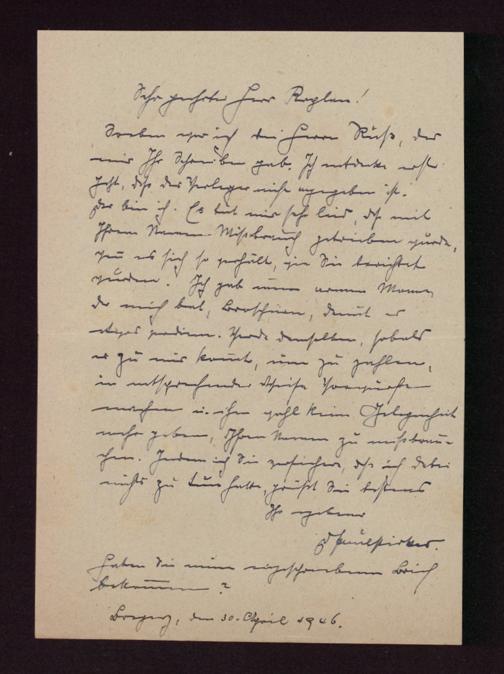 Sehr geehrter Herr Kaplan!
Soeben war ich bei Herrn Ruß, der
mir Ihr Schreiben gab. Ich entdecke erst
jetzt, daß der Verleger nicht angegeben ist.
Der bin ich. Es tut mir sehr leid, daß mit
Ihrem Namen Missbrauch getrieben wurde,
wenn es sich so verhält, wie Sie berichtet
wurden. Ich gab einem armen Manne,
der mich bat, Broschüren, damit er
etwas verdiene. Werde demselben, sobald
er zu mir kommt, um zu zahlen,
in entsprechender Weise Vorwürfe
machen u. ihm wohl keine Gelegenheit
mehr geben, Ihren Namen zu missbrau-
chen. Indem ich Sie versichere, daß ich dabei
nichts zu tun hatte, grüßt Sie bestens
Ihr ergebener
Haben Sie meinen eingeschriebenen Brief
bekommen?
Bregenz, den 30. April 1946.